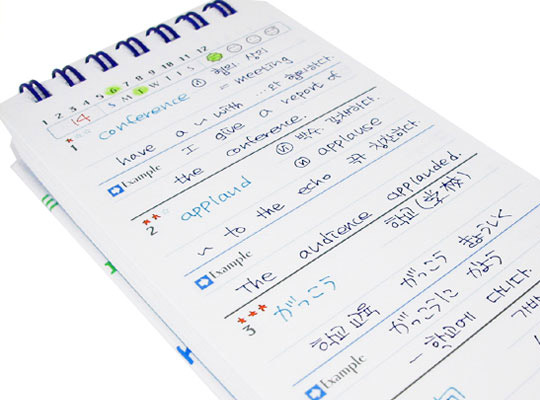 1 2 3 4 5 6 7 8 9 10 11 12
14 S M T W T F S
1 conference ⓝ 협의, 상의
= meeting
have a ~ with ...와 협의하다.
Example I give a report of
the conference.
2 applaud ⓥ 박수 갈채하다.
ⓝ applause
~ to the echo 극구 칭찬하다.
Example The audience applauded.
3 がっこう 학교 (学校)
학교 교육 がっこう きょういく
Example がっこうに かよう
- 학교에 다니다.